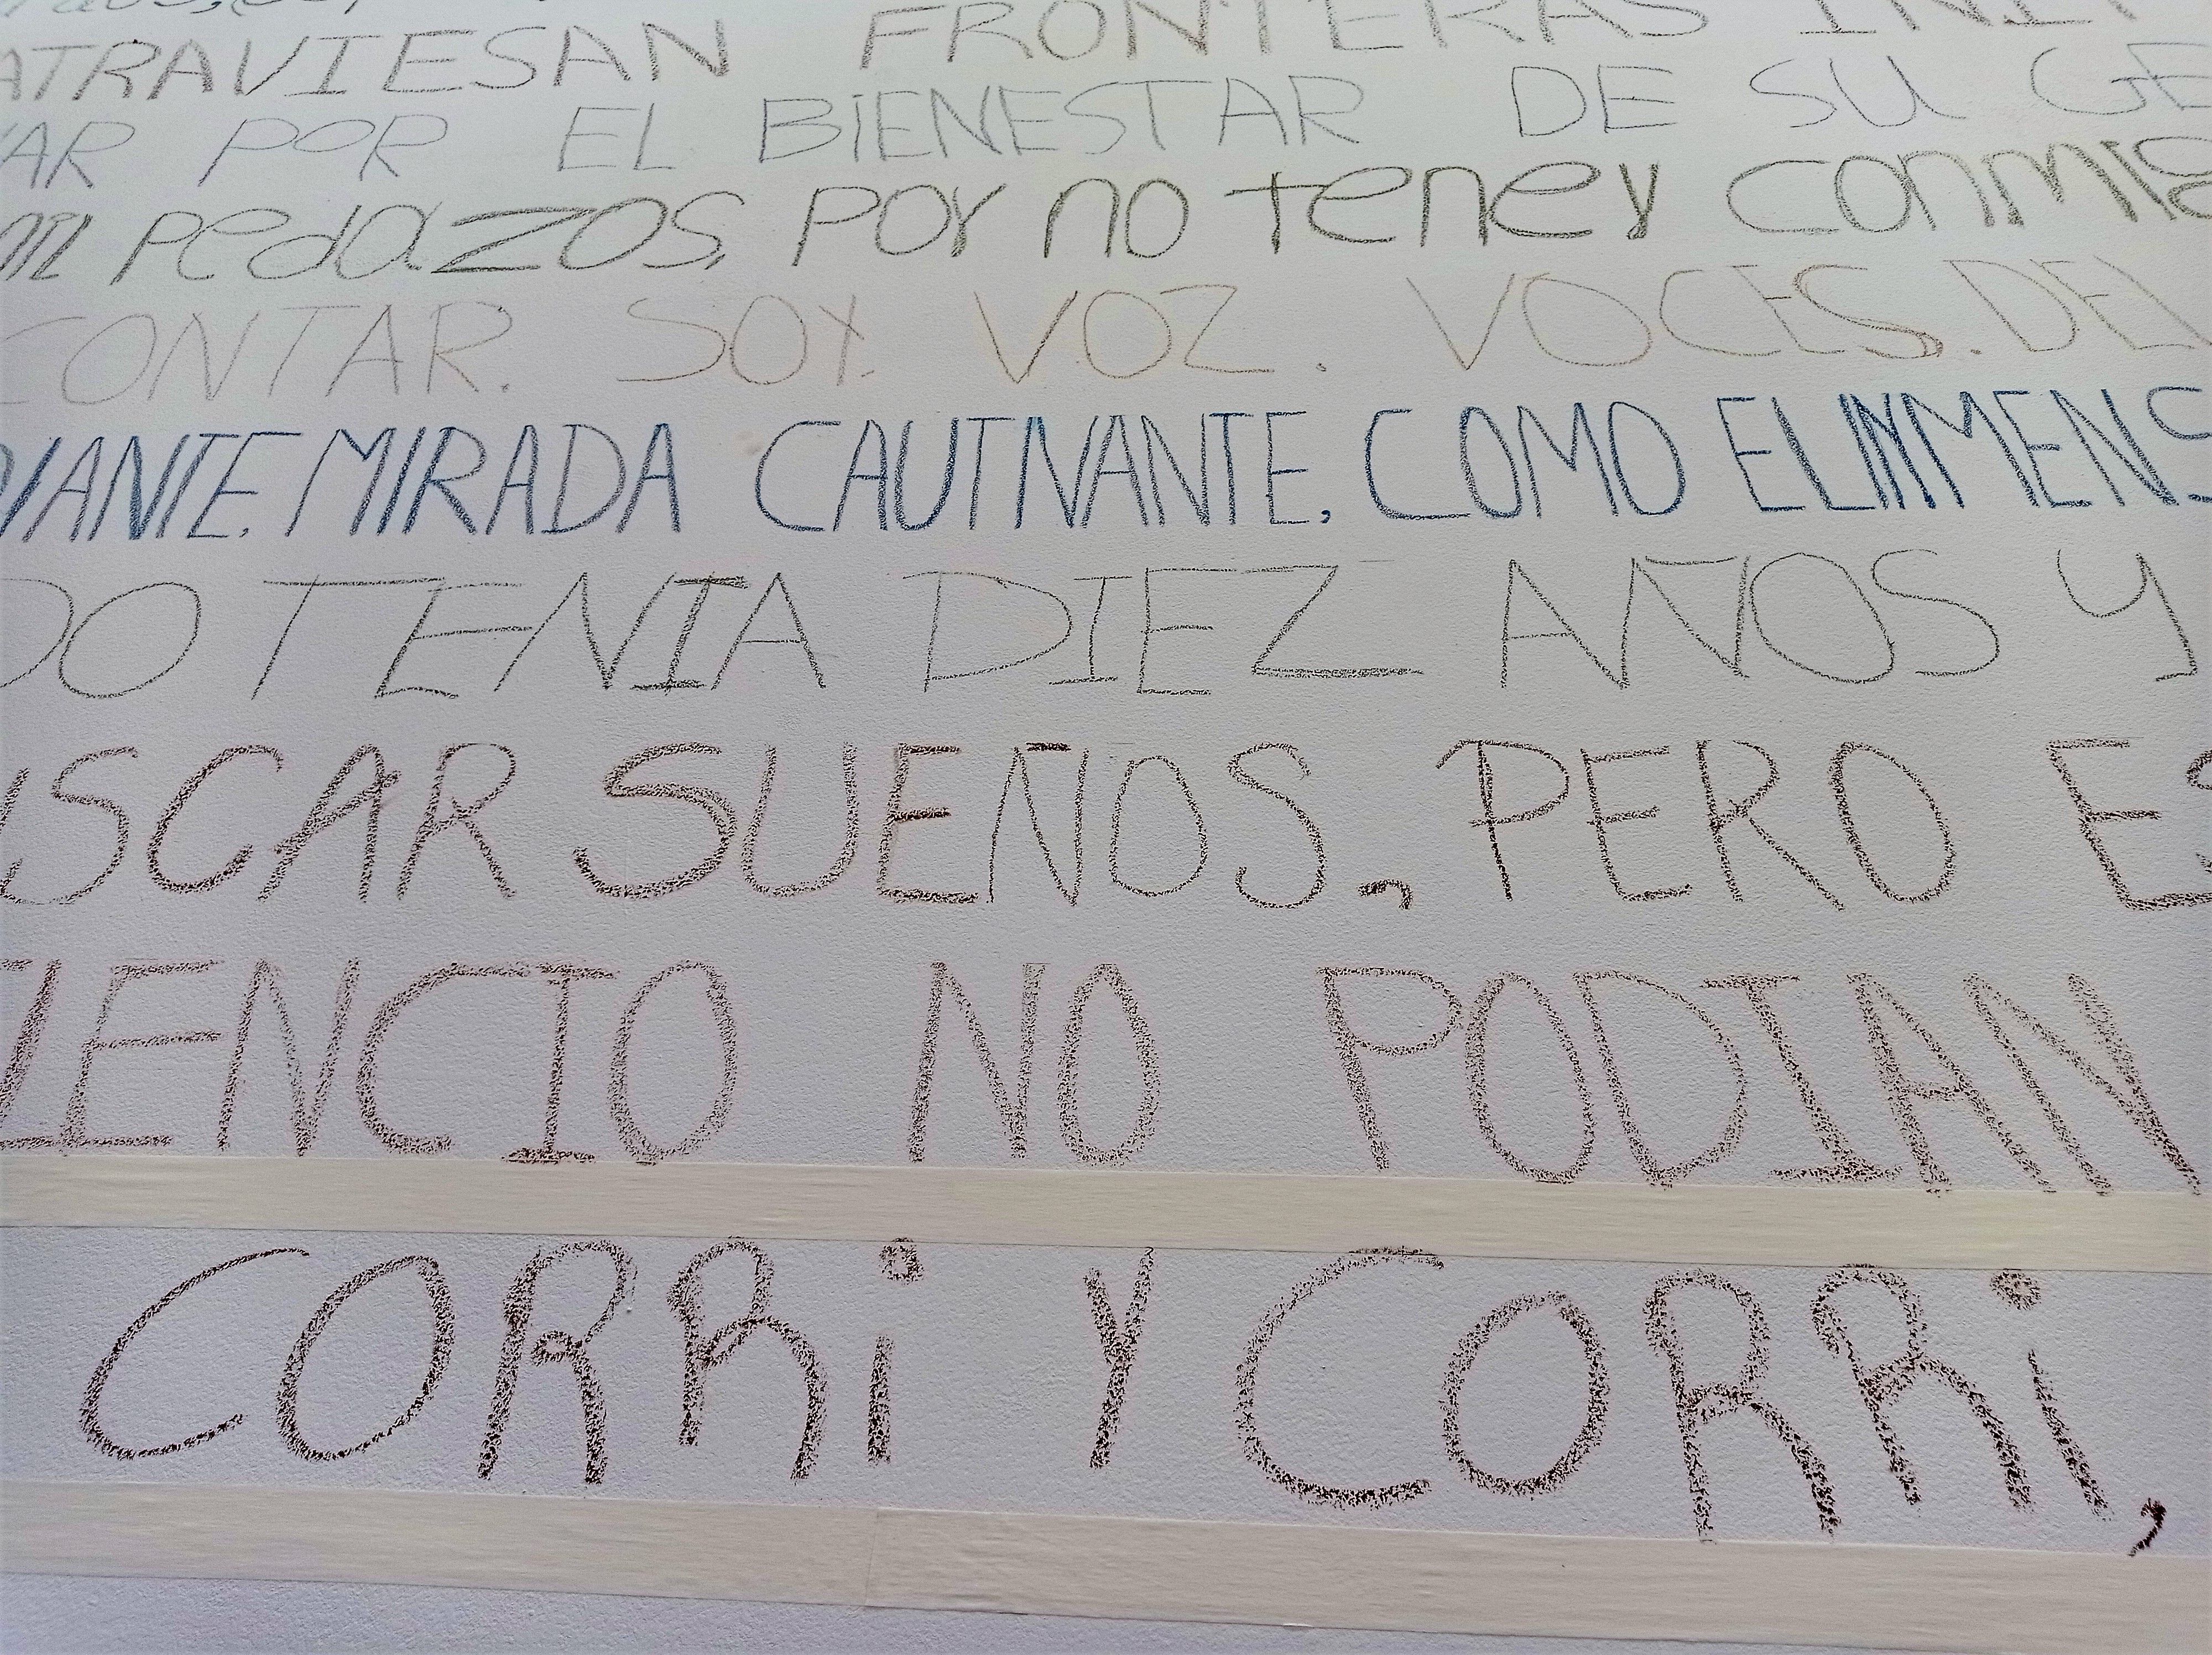 ATRAVIESAN FRONTERAS
POR EL BIENESTAR DE SU
pedazos, por no tener
CONTAR. SOY. VOZ. VOCES. DEL
MIRADA CAUTIVANTE, COMO EL INMENS
TENIA DIEZ AÑOS Y
SCAR SUEÑOS., PERO ES
LENCIO NO PODIAN
CORRi Y CORRi,